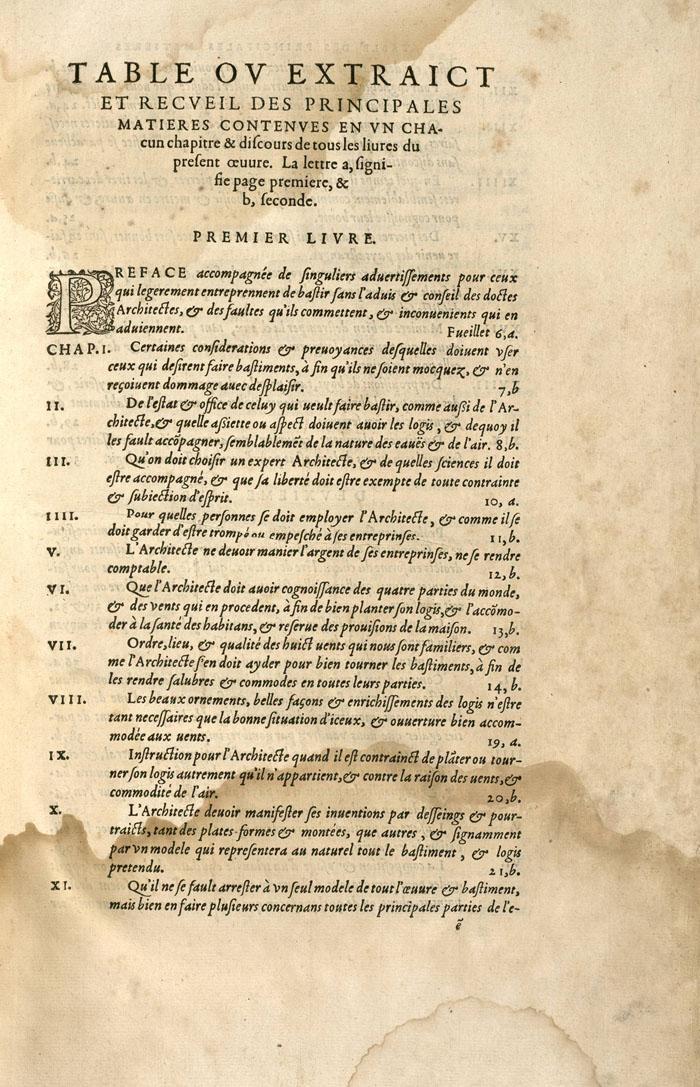 TABLE OV EXTRAICT
ET RECVEIL DES PRINCIPALES
MATIERES CONTENVES EN VN CHA-
cun chapitre & diſcours de tous les liures du
preſent œuure. La lettre a, ſigni-
fie page premiere, &
b, ſeconde.
PREMIER LIVRE.
PREFACE accompagnée de ſinguliers aduertiſſements pour ceux
qui legerement entreprennent de baſtir ſans l'aduis & conſeil des doctes
Architectes, & des faultes qu'ils commettent, & inconuenients qui en
aduiennent. Fueillet 6,a.
CHAP. I. Certaines conſiderations & preuoyances deſquelles doiuent vſer
ceux qui deſirent faire baſtiments, à fin qu'ils ne ſoient mocquez, & n'en
reçoiuent dommage auec deſplaiſir. 7,b
II. De l'eſtat & office de celuy qui ueult faire baſtir, comme außi de l'Ar-
chitecte, & quelle aßiette ou aſpect doiuent auoir les logis, & dequoy il
les fault accõpagner, ſemblablemẽt de la nature des eauës & de l'air. 8,b.
III. Qu'on doit choiſir un expert Architecte, & de quelles ſciences il doit
eſtre accompagné, & que ſa liberté doit eſtre exempte de toute contrainte
& ſubiection d'eſprit. 10, a.
IIII. Pour quelles perſonnes ſe doit employer l'Architecte, & comme il ſe
doit garder d'eſtre trompé ou empeſché à ſes entreprinſes. 11,b.
V. L'Architecte ne deuoir manier l'argent de ſes entreprinſes, ne ſe rendre
comptable. 12,b.
VI. Que l'Architecte doit auoir cognoiſſance des quatre parties du monde,
& des vents qui en procedent, à fin de bien planter ſon logis, & l'accõmo-
der à la ſanté des habitans, & reſerue des prouiſions de la maiſon. 13,b.
VII. Ordre, lieu, & qualité des huict uents qui nous ſont familiers, & com
me l'Architecte ſ'en doit ayder pour bien tourner les baſtiments, à fin de
les rendre ſalubres & commodes en toutes leurs parties. 14, b.
VIII. Les beaux ornements, belles façons & enrichiſſements des logis n'eſtre
tant neceſſaires que la bonne ſituation d'iceux, & ouuerture bien accom-
modée aux uents. 19, a.
IX. Inſtruction pour l'Architecte quand il eſt contrainct de plãter ou tour-
ner ſon logis autrement qu'il n'appartient, & contre la raiſon des uents, &
commodité de l'air. 20,b.
X. L'Architecte deuoir manifeſter ſes inuentions par deſſeings & pour-
traicts, tant des plates-formes & montées, que autres, & ſignamment
par vn modele qui repreſentera au naturel tout le baſtiment, & logis
pretendu. 21,b.
XI. Qu'il ne ſe fault arreſter à vn ſeul modele de tout l'œuure & baſtiment,
mais bien en faire pluſieurs concernans toutes les principales parties de l'e-
ẽ